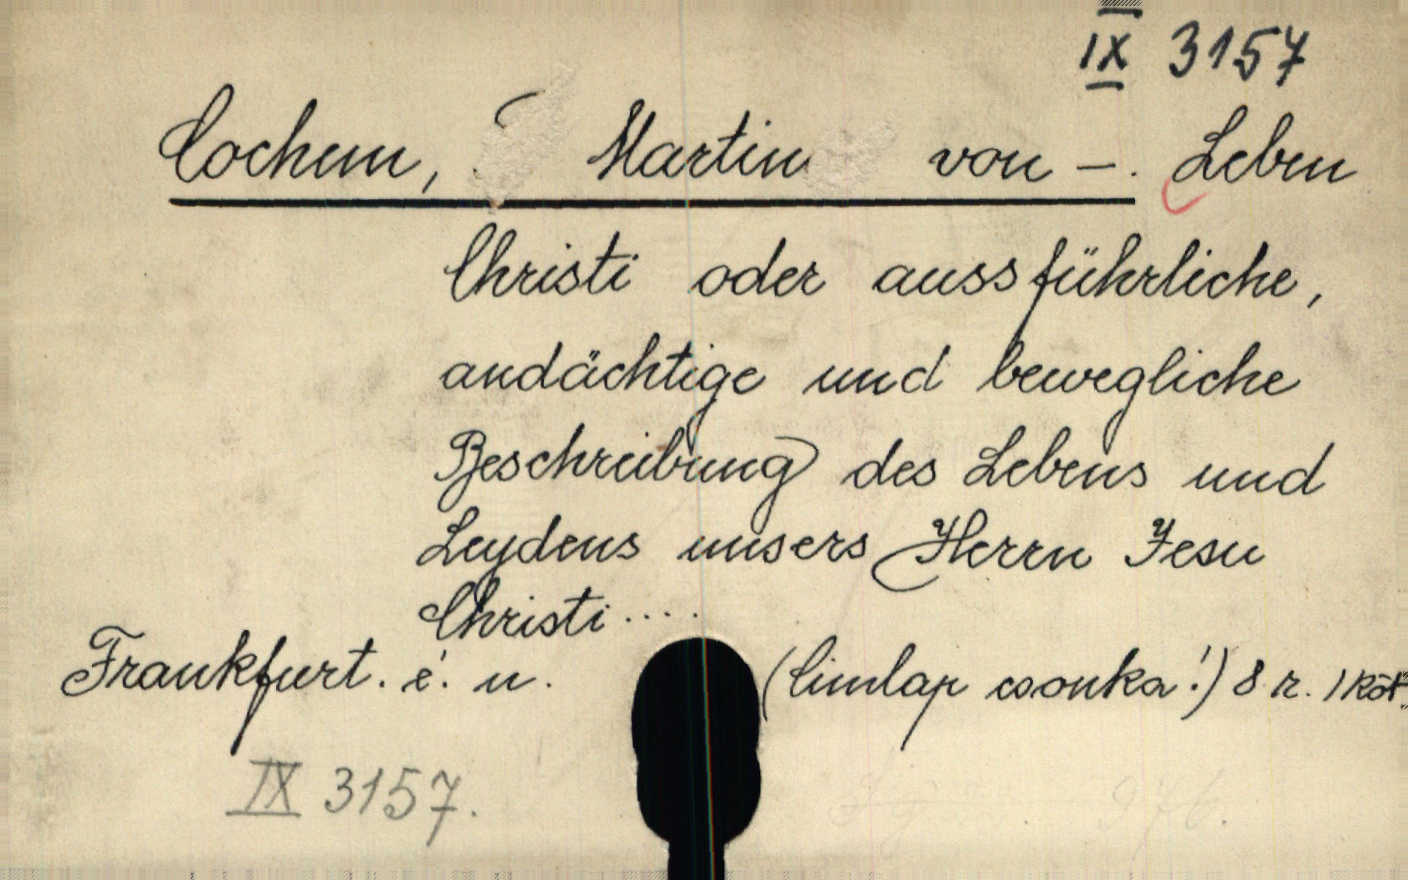 IX 3157
Cochem, Martin von –. Leben
Christi oder aussführliche,
andächtige und bewegliche
Beschreibung des Lebens und
Leydens unsers Herrn Jesu
Christi....
Frankfurt. é. n. (Címlap csonka!) 8 r. 1 köt.
IX 3157.